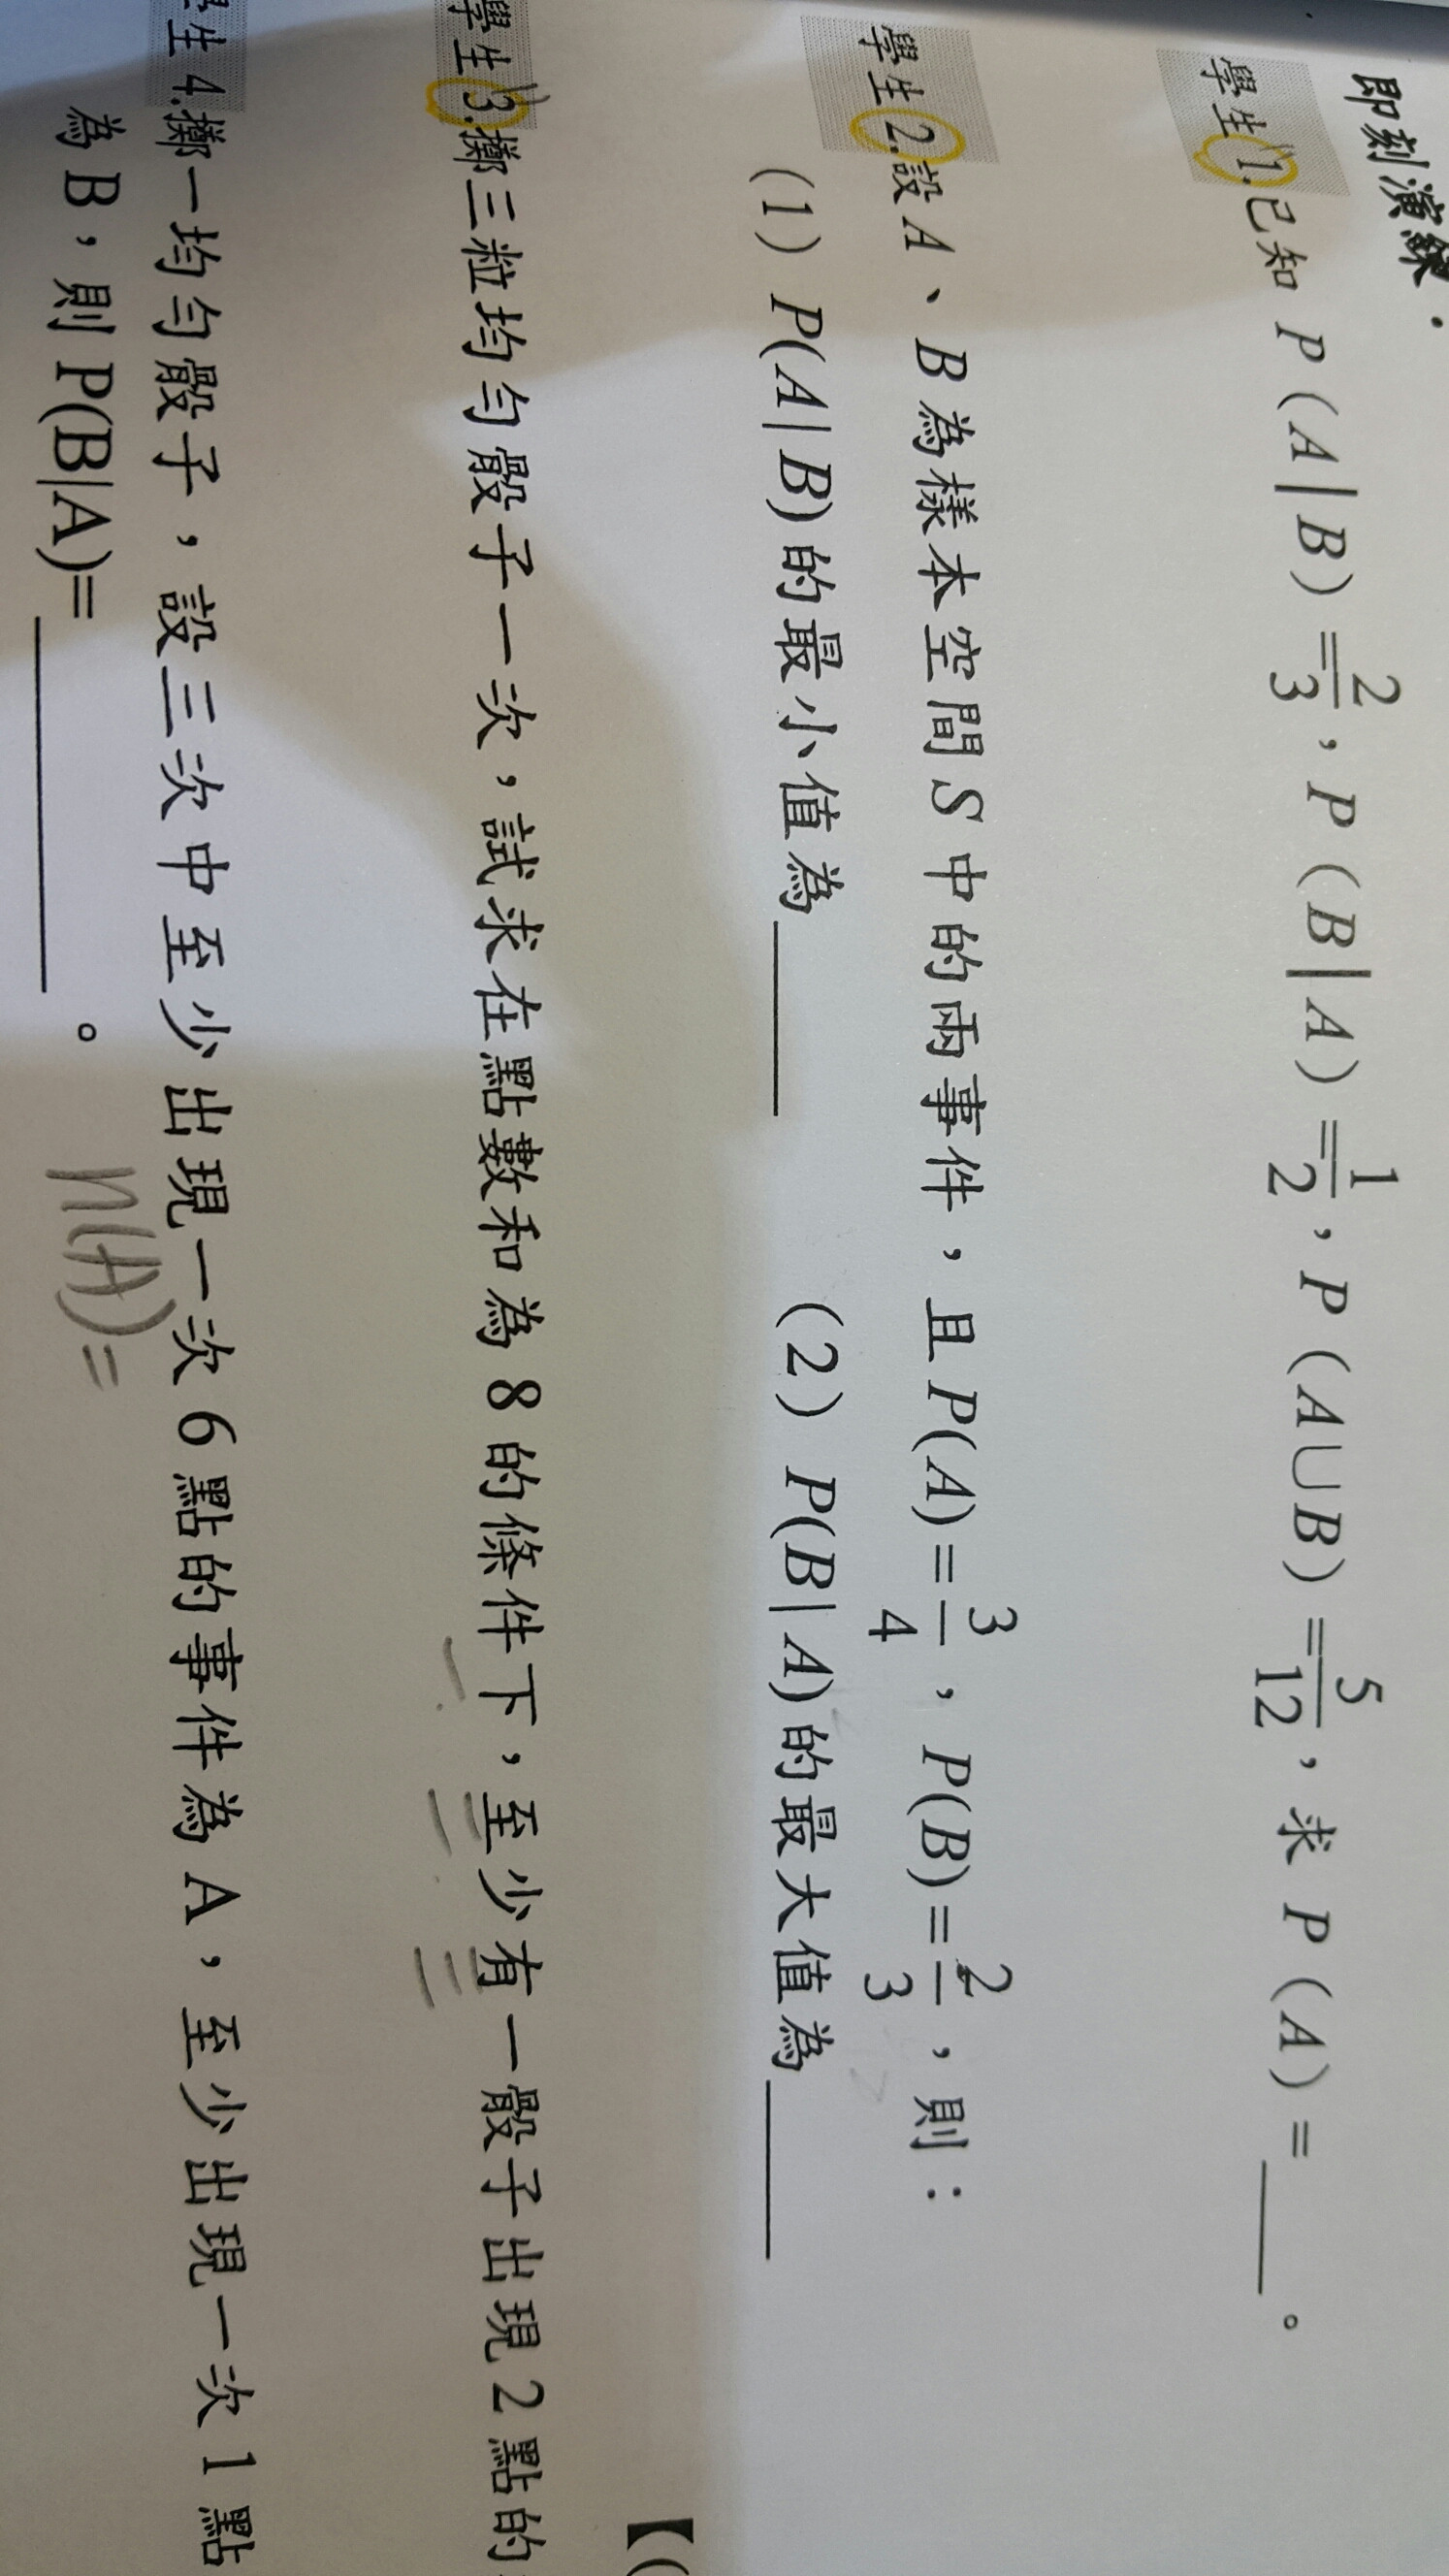 即刻演練．
學生1.已知 P（A｜B）=2/3，P（B｜A）=1/2，P（A∪B）=5/12，求 P（A）=____。
學生2.設A、B為樣本空間S中的兩事件，且P(A)=3/4，P(B)=2/3，則：
（1）P(A|B)的最小值為____ （2）P(B|A)的最大值為____
【(
學生3.擲三粒均勻骰子一次，試求在點數和為8的條件下，至少有一骰子出現2點的
學生4.擲一均勻骰子，設三次中至少出現一次6點的事件為A，至少出現一次1點
為B，則P(B|A)=____。
n(A)=